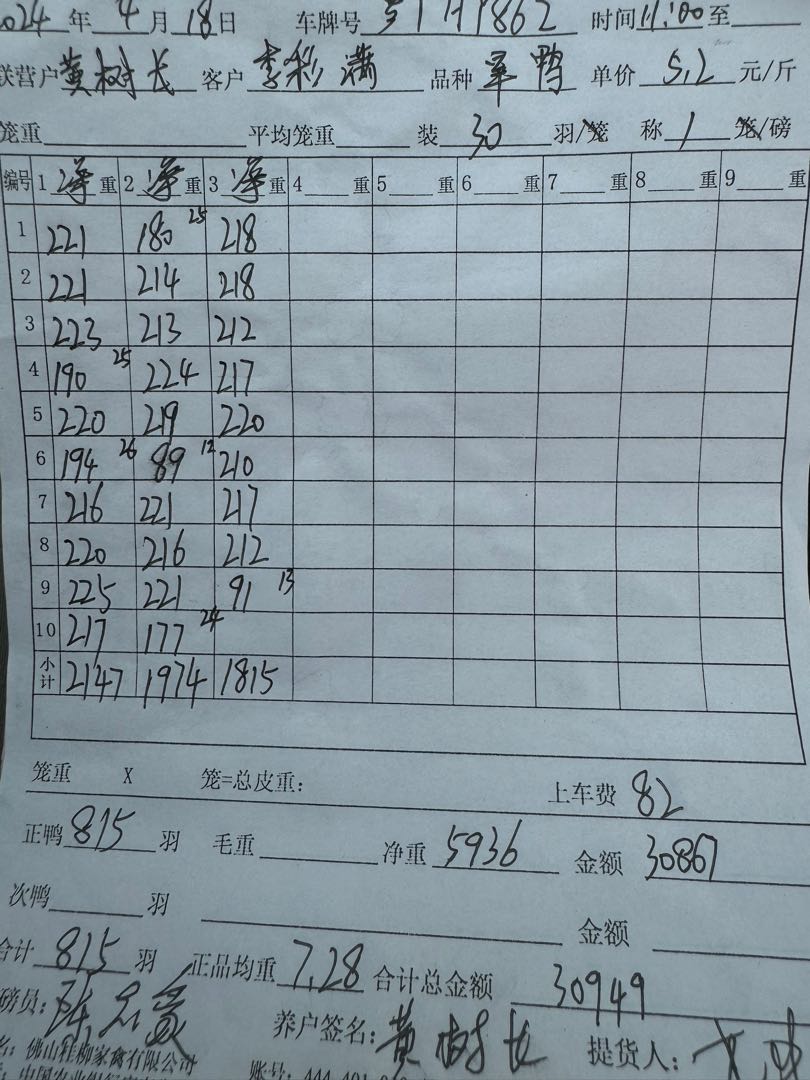 2024 年 4 月 18 日 车牌号 H1862 时间 11:00 至
联营户 黄树长 客户 李彩满 品种 军鸭 单价 5.2 元/斤
笼重 平均笼重 装 30 羽/笼 称 1 笼/磅
编号 1 净 重 2 净 重 3 净 重 4 重 5 重 6 重 7 重 8 重 9 重
1 221 180 25 218
2 221 214 218
3 223 213 212
4 190 25 224 217
5 220 219 220
6 194 26 89 12 210
7 216 221 217
8 220 216 212
9 225 221 91 13
10 217 177 24
小计 2147 1974 1815
笼重 X 笼=总皮重: 上车费 82
正鸭 815 羽 毛重 净重 5936 金额 30867
次鸭 羽 金额
合计 815 羽 正品均重 7.28 合计总金额 30949
磅员: 养户签名: 黄树长 提货人:
名: 佛山桂柳家禽有限公司
中国农业银行 账号: 444